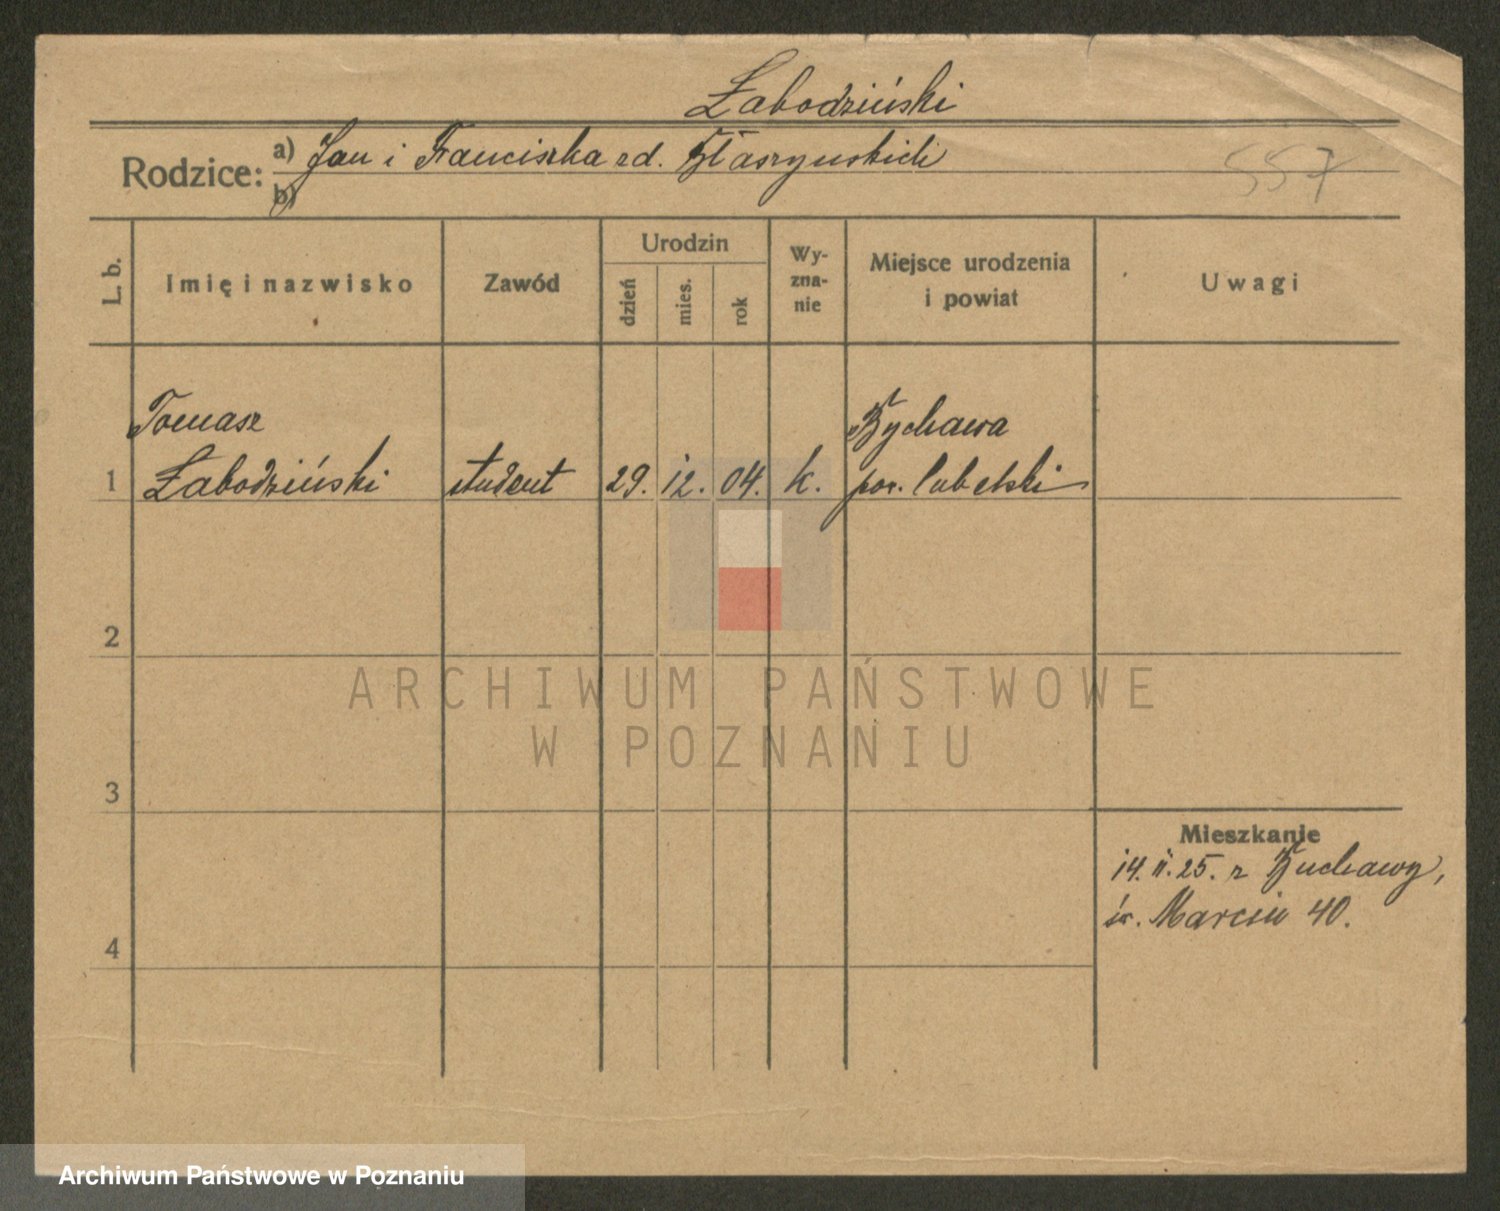 Żabodziński
Rodzice: a) Jan i Franciszka zd. Błaszynskich
b)
557
L. b.
Imię i nazwisko
Zawód
Urodzin
dzień
mies.
rok
Wy-
zna-
nie
Miejsce urodzenia
i powiat
Uwagi
Tomasz
Bychawa
1 Żabodziński student 29. 12. 04. k. pow. lubelski
2
ARCHIWUM PAŃSTWOWE
W POZNANIU
3
Mieszkanie
14. II. 25. z Buchawy,
św. Marcin 40.
4
Archiwum Państwowe w Poznaniu